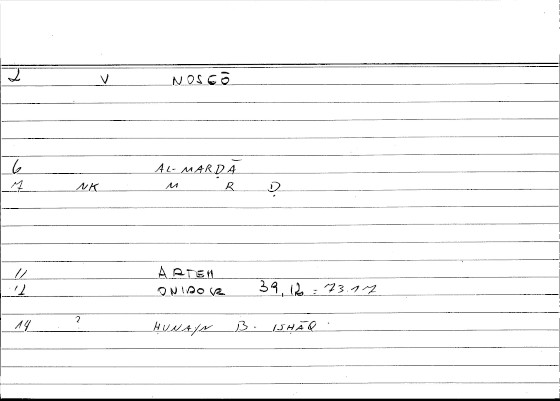 2 V NOSEŌ
6 AL-MARḌĀ
7 NK M R Ḍ
11 ARTEH
12 39,12 : 73.17
14 ? ḤUNAYN B. ISḤĀQ